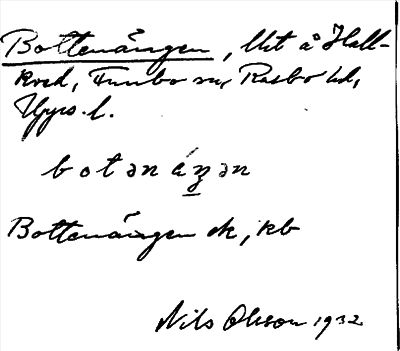 Bottenängen, Ut å Hall-
kved, Funbo sn, Rasbo hd,
Upps. l.
botənáŋən
Bottenängen ek, kb
Nils Olsson 1932